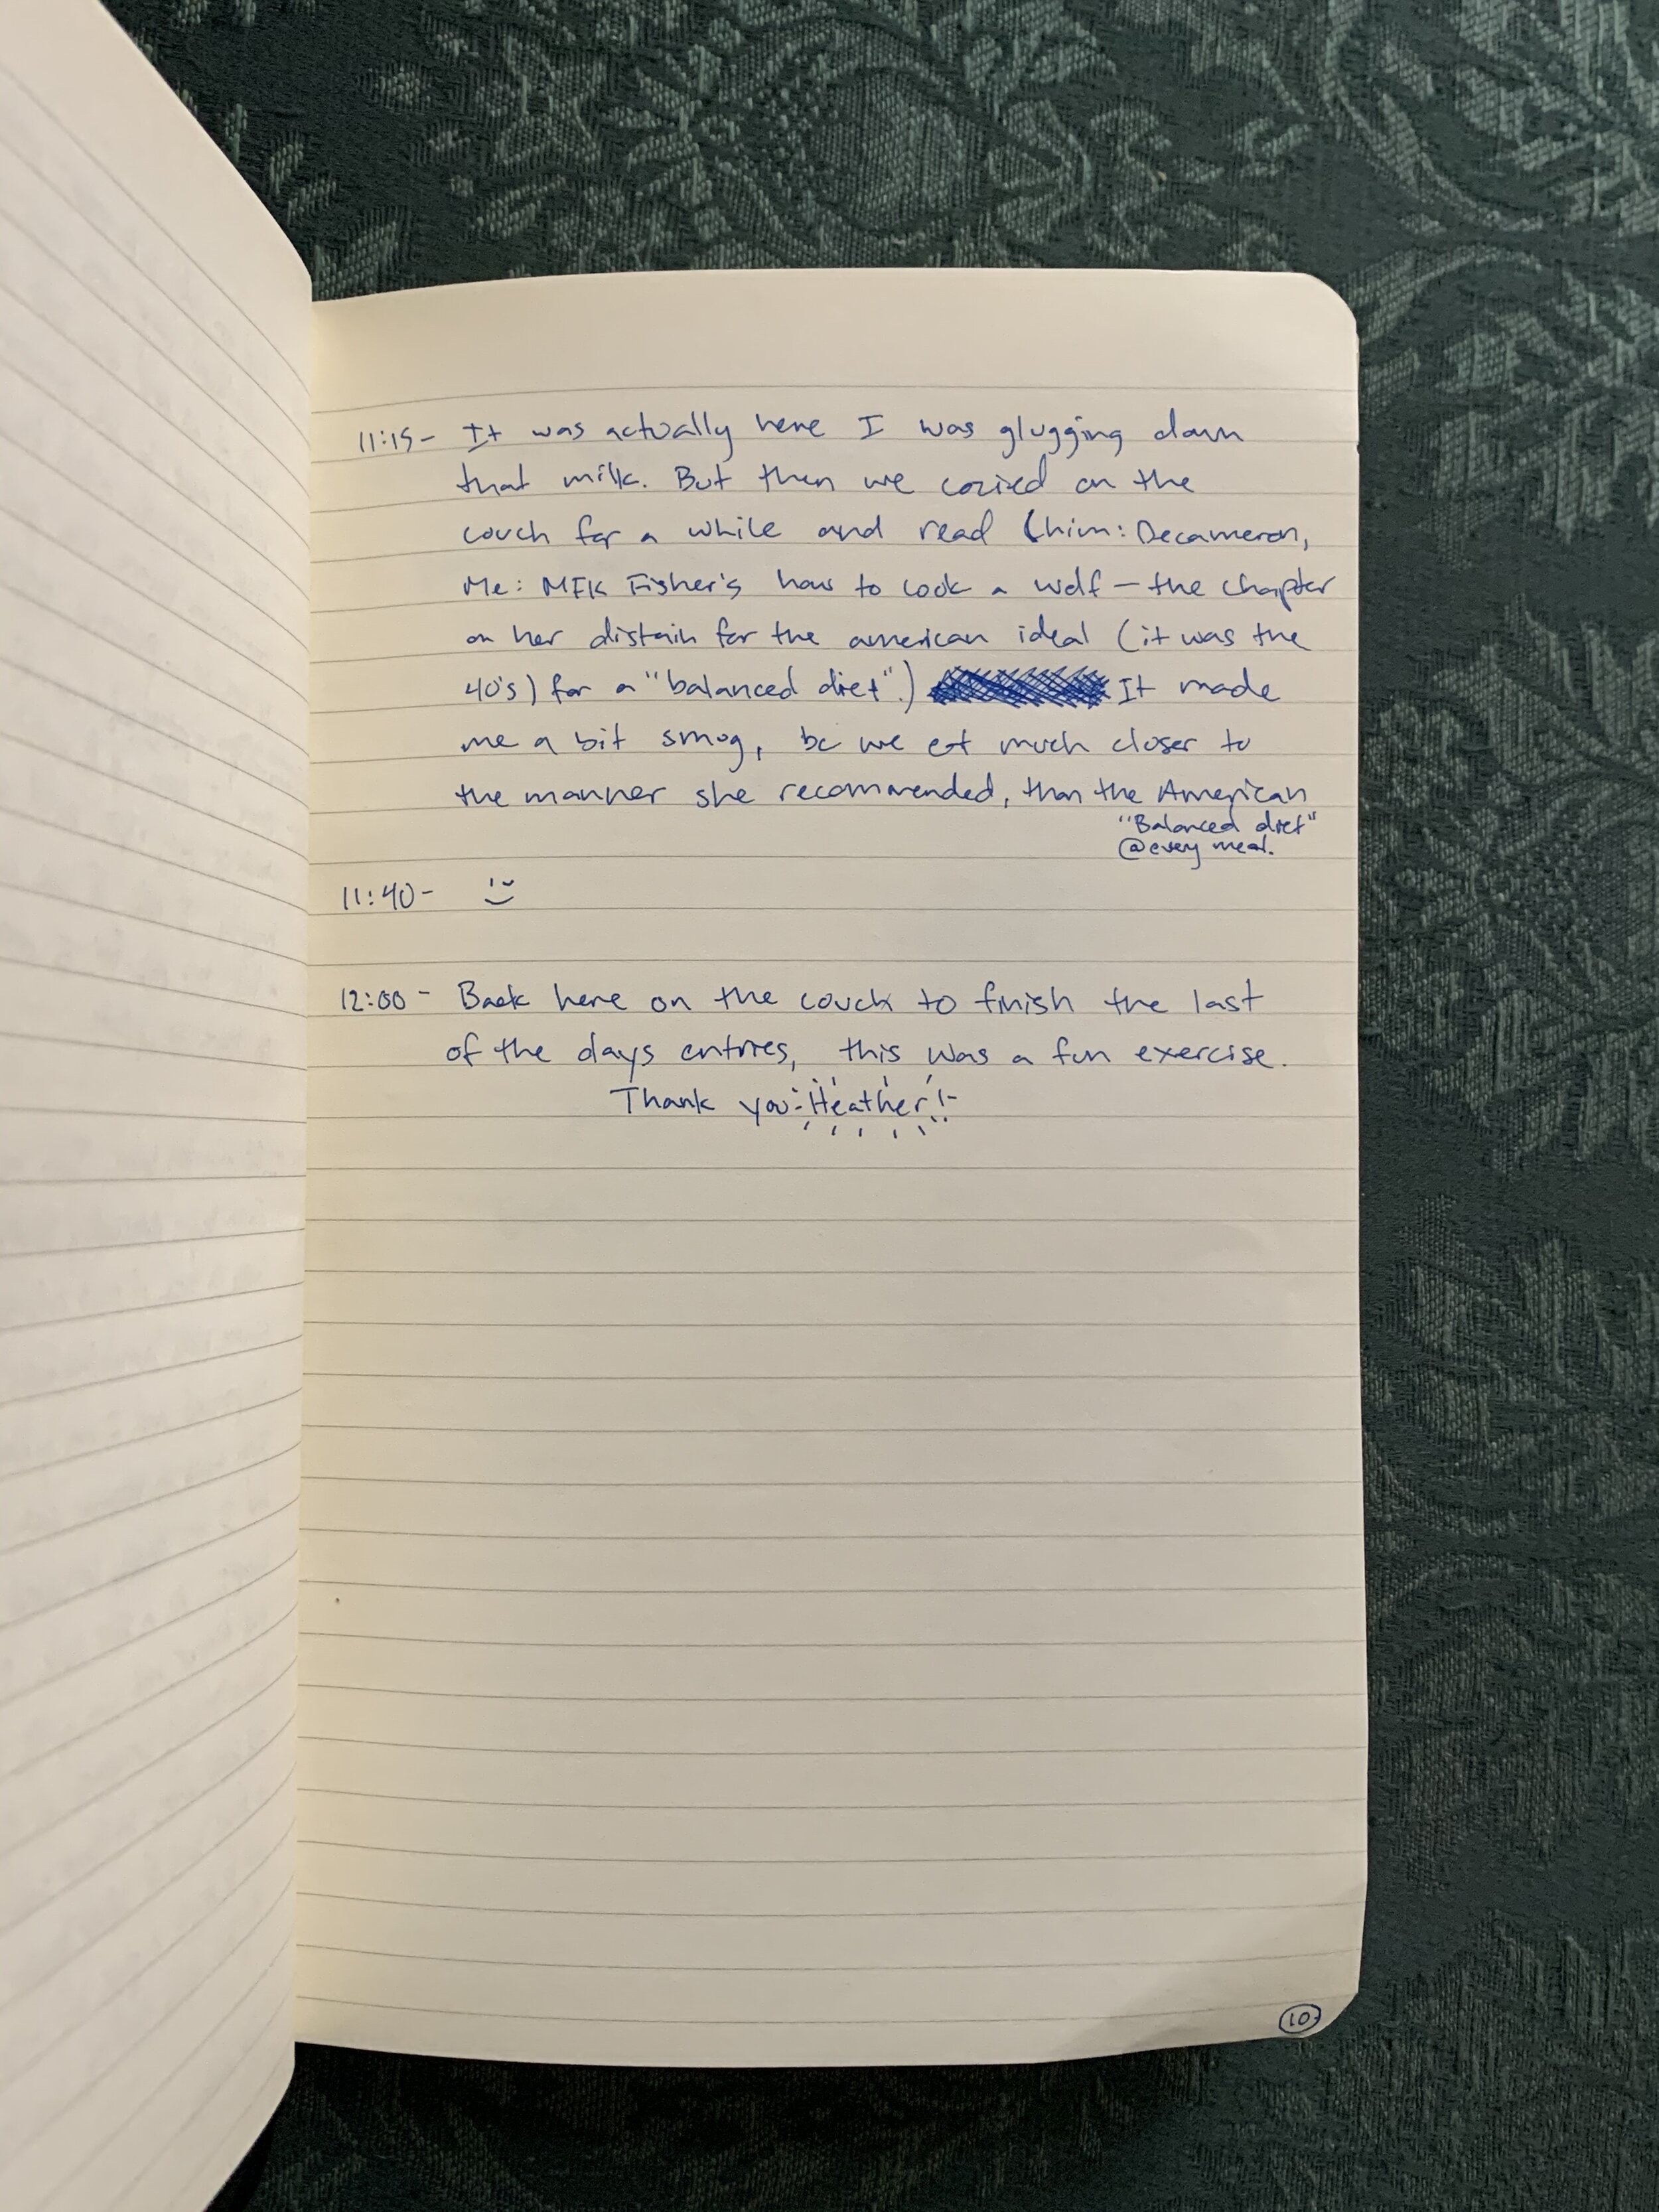 11:15- It was actually here I was glugging down
that milk. But then we cozied on the
couch for a while and read (him: Decameron,
Me: MFK Fisher's how to cook a wolf — the chapter
on her distain for the american ideal (it was the
40's) for a "balanced diet".) It made
me a bit smug, bc we eat much closer to
the manner she recommended, than the American
"Balanced diet"
@every meal.
11:40-
12:00- Back here on the couch to finish the last
of the days entries, this was a fun exercise.
Thank you Heather!
10